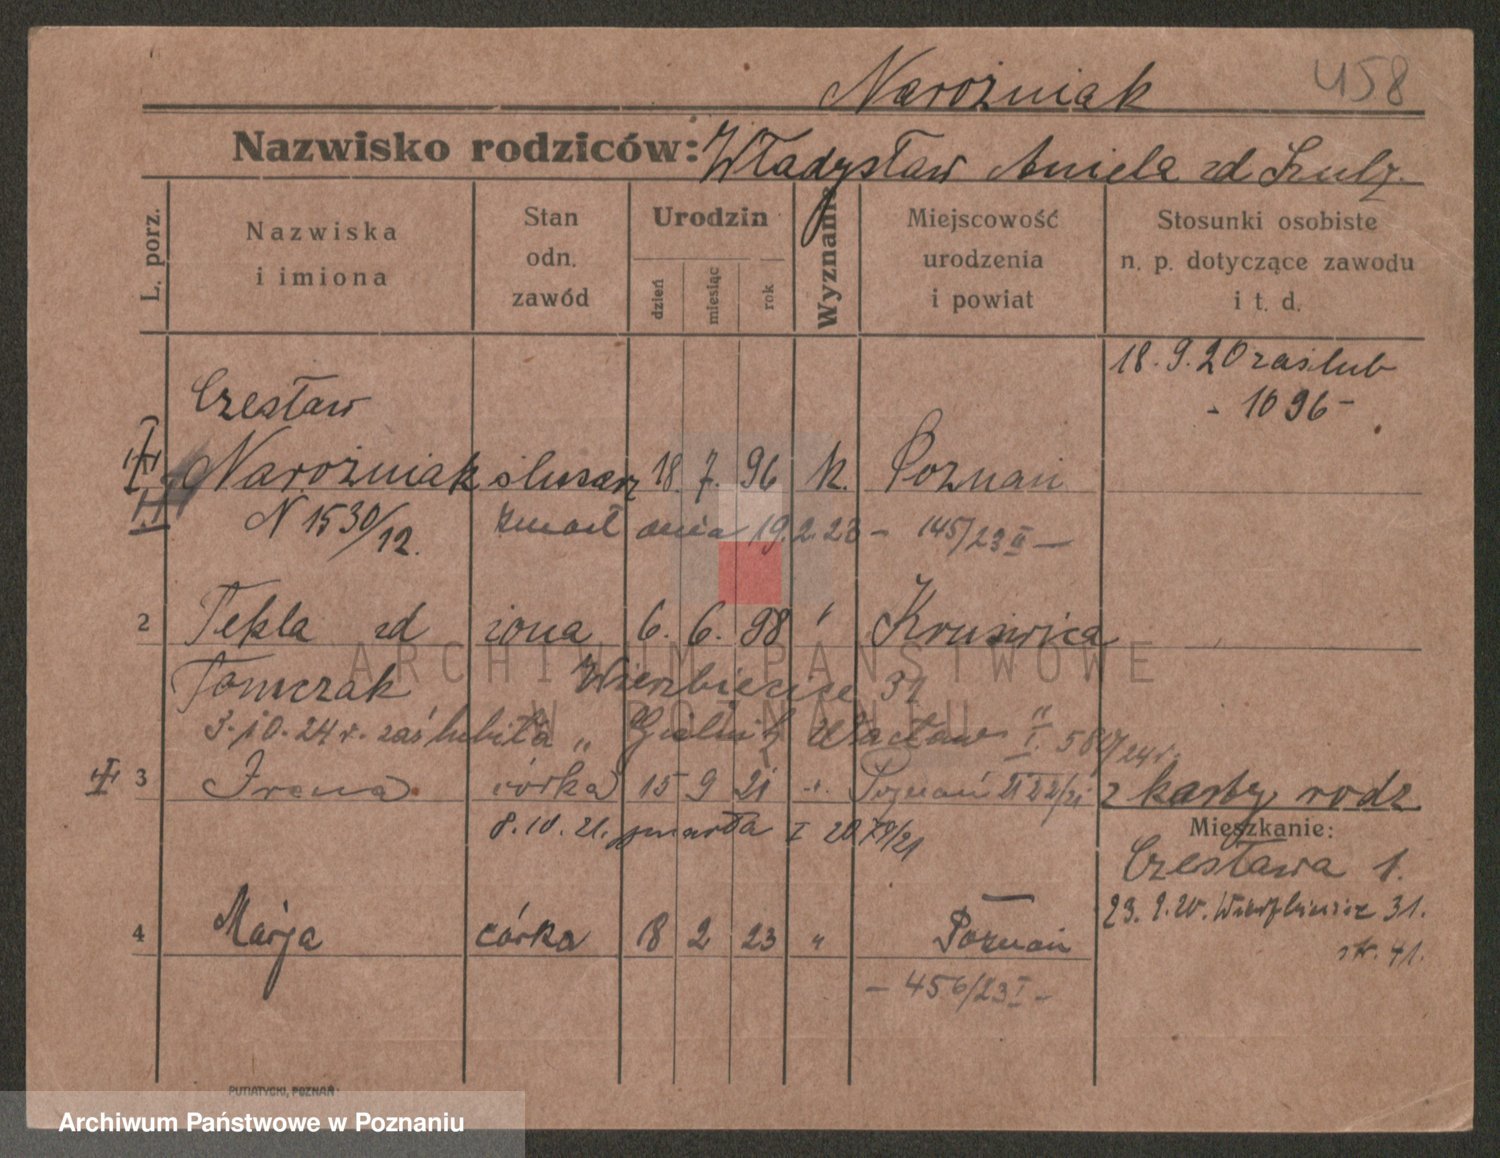 458
Narożniak
Nazwisko rodziców: Władysław Aniela zd Szulz.
L. porz.
Nazwiska i imiona
Stan odn. zawód
Urodzin
dzień
miesiąc
rok
Wyznanie
Miejscowość urodzenia i powiat
Stosunki osobiste n. p. dotyczące zawodu i t. d.
18. 9. 20 zaślub
- 1096 -
Czesław
Narożniak ślusarz 18. 7. 96 k. Poznań
N 1530/12. zmarł dnia 19. 2. 23 - 145/23 II -
2 Tekla zd żona 6. 6. 98 " Kruświca
Tomczak Wierzbięcice 31
3. 10. 24 r. zaślubiła " Wacław " I.
3 Irena córka 15 9 21 Poznań
8. 10. 21. zmarła I
z karty rodz
Mieszkanie:
Czesława 1.
4 Marja córka 18 2 23 " Poznań
- 456/23 I -
31.
41.
PUTIATYCKI, POZNAŃ
ARCHIWUM PAŃSTWOWE
W POZNANIU
Archiwum Państwowe w Poznaniu